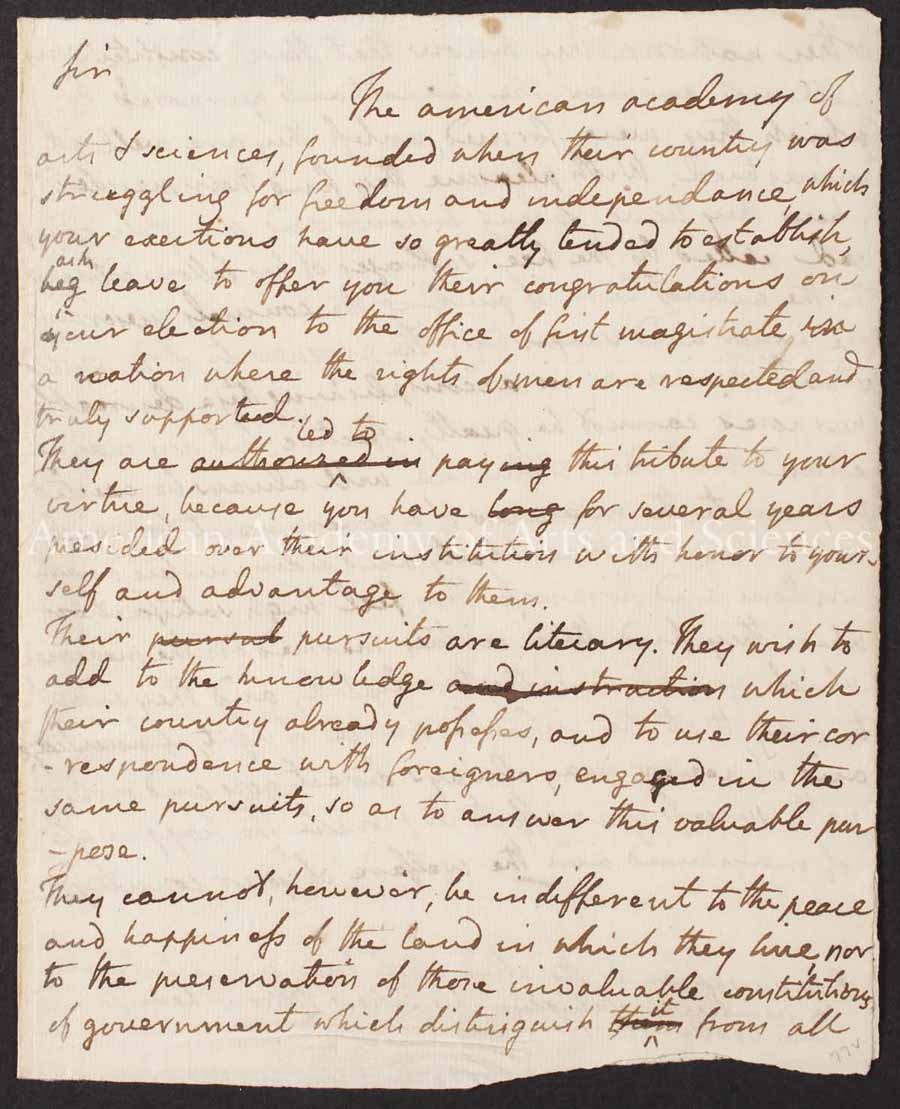 Sir
The american academy of
arts & sciences, founded when their country was
struggling for freedom and independance, which
your exertions have so greatly tended to establish,
ask
beg leave to offer you their congratulations on
your election to the office of first magistrate in
a nation where the rights of men are respected and
truly supported.
led to
They are authorized in paying this tribute to your
virtue, because you have long for several years
American Academy of Arts and Sciences
presided over their institution with honor to your-
self and advantage to them.
Their pursual pursuits are literary. They wish to
add to the knowledge and instruction which
their country already possesses, and to use their cor
-respondence with foreigners, engaged in the
same pursuits, so as to answer this valuable pur
-pose.
They cannot, however, be indifferent to the peace
and happiness of the land in which they live, nor
to the preservation of those invaluable constitutions
it
of government which distinguish them from all